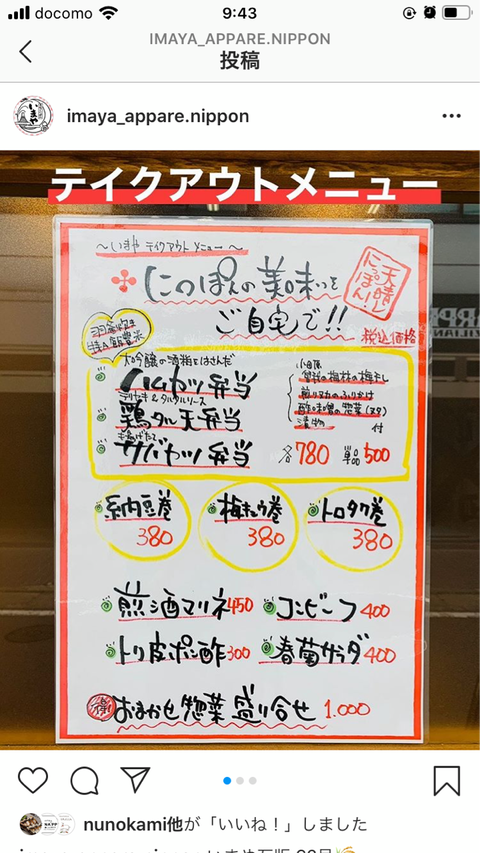 docomo 9:43
IMAYA_APPARE.NIPPON
投稿
imaya_appare.nippon
テイクアウトメニュー
〜いまや テイクアウト メニュー〜
天晴れ
にっぽん!
にっぽんの美味いを
ご自宅で!!
税込価格
羽釜炊き
大吟醸の酒粕をはさんだ
ハムカツ弁当
テリヤキ&タルタルソース
鶏タル天弁当
サバカツ弁当
小田原
煎りヌカのふりかけ
酢味噌の惣菜(ヌタ)
漬物 付
各780 単品500
納豆巻
380
梅キュウ巻
380
トロタク巻
380
煎酒マリネ450
コンビーフ400
トリ皮ポン酢300
春菊サラダ400
おまかせ惣菜盛り合せ 1.000
nunokami他が「いいね!」しました